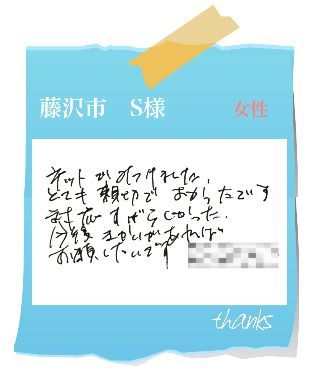 藤沢市 S様
女性
ネットでみつけました。
とても親切でよかったです
対応すばらしかった。
今後きかいがあれば
お願いしたいです
thanks